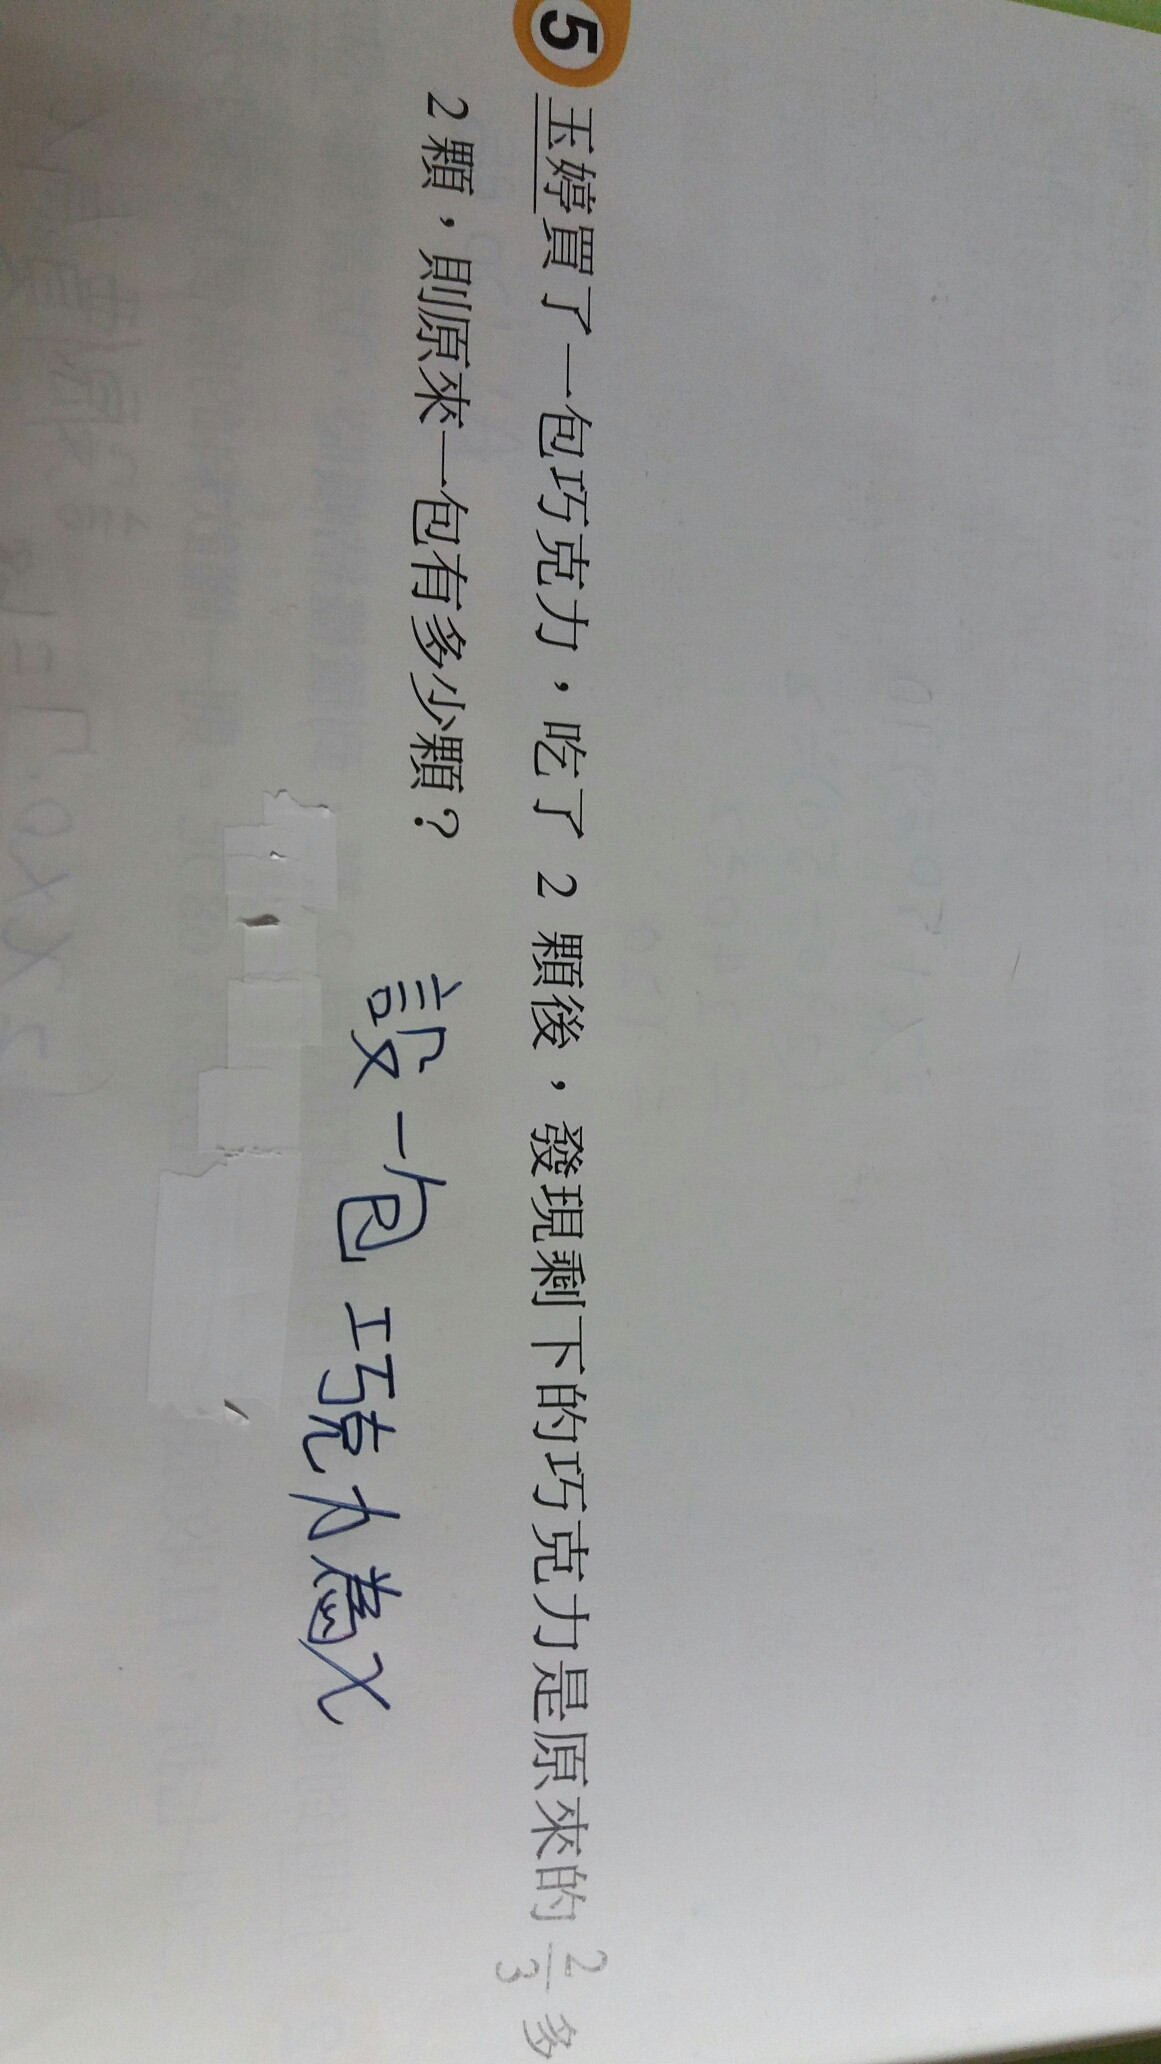 5 玉婷買了一包巧克力，吃了 2 顆後，發現剩下的巧克力是原來的 2/3 多
2 顆，則原來一包有多少顆？
設一包巧克力為x